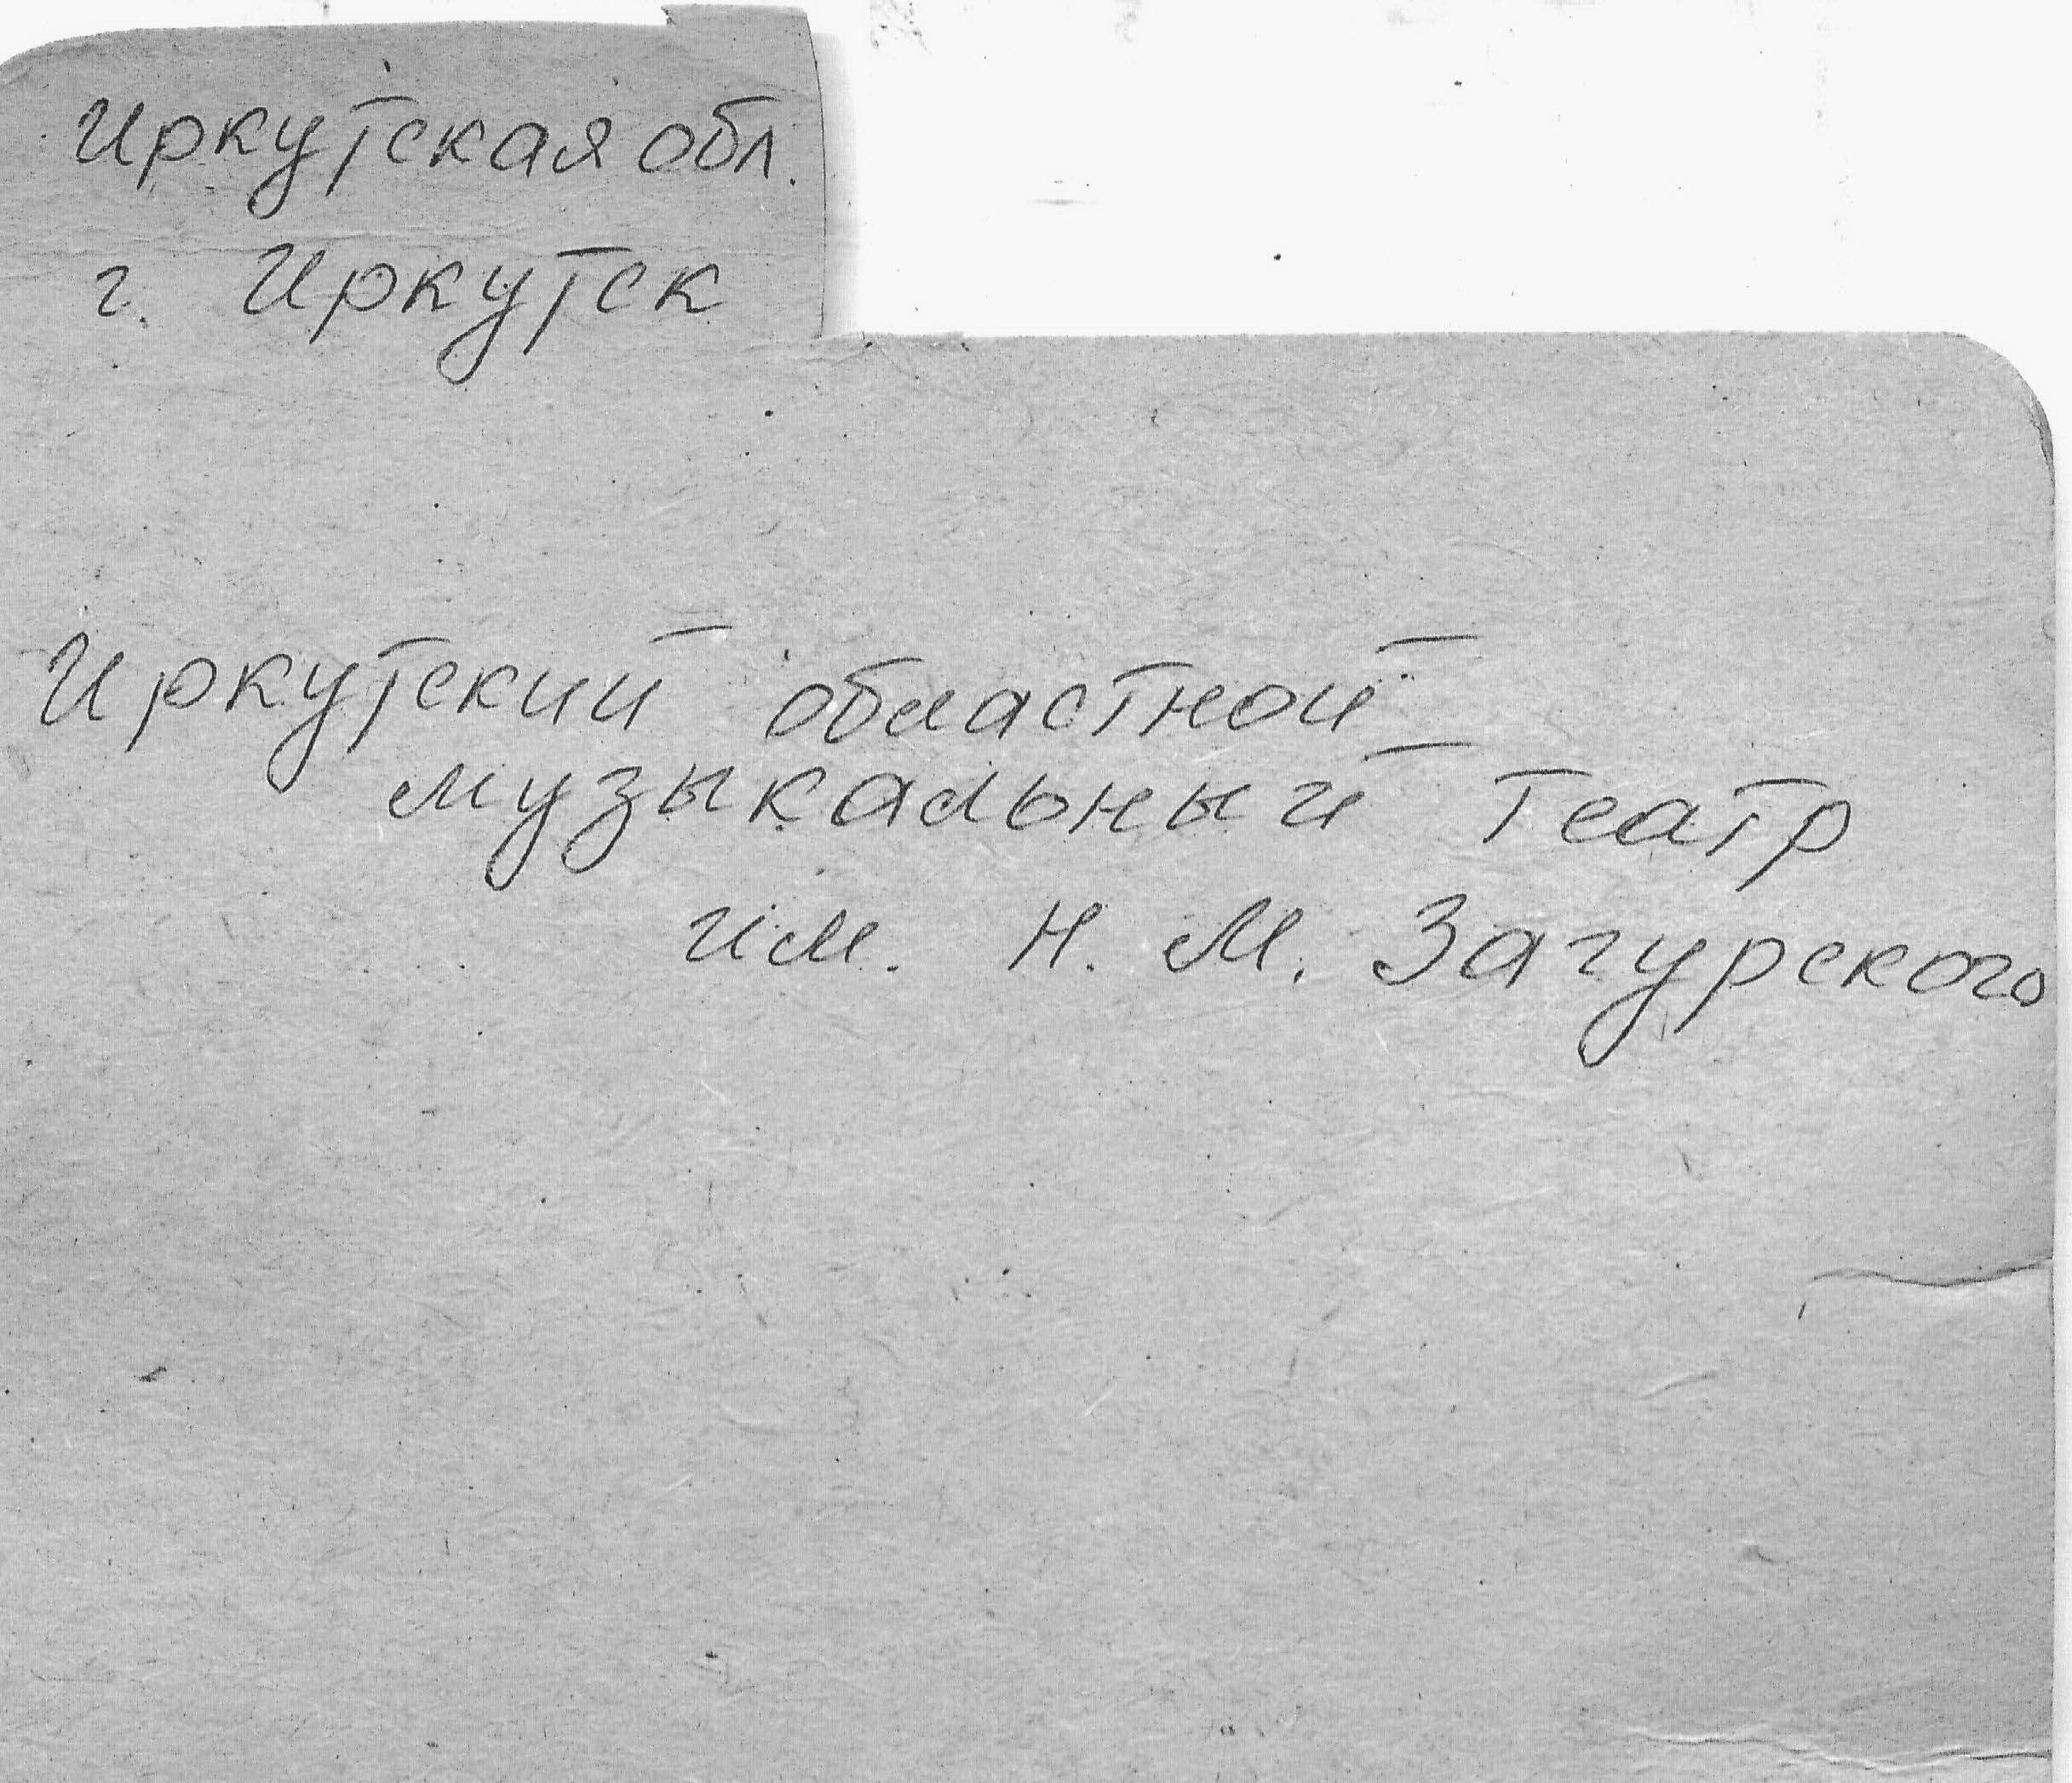 Иркутская обл.
г. Иркутск
Иркутский областной
музыкальный театр
им. Н. М. Загурского